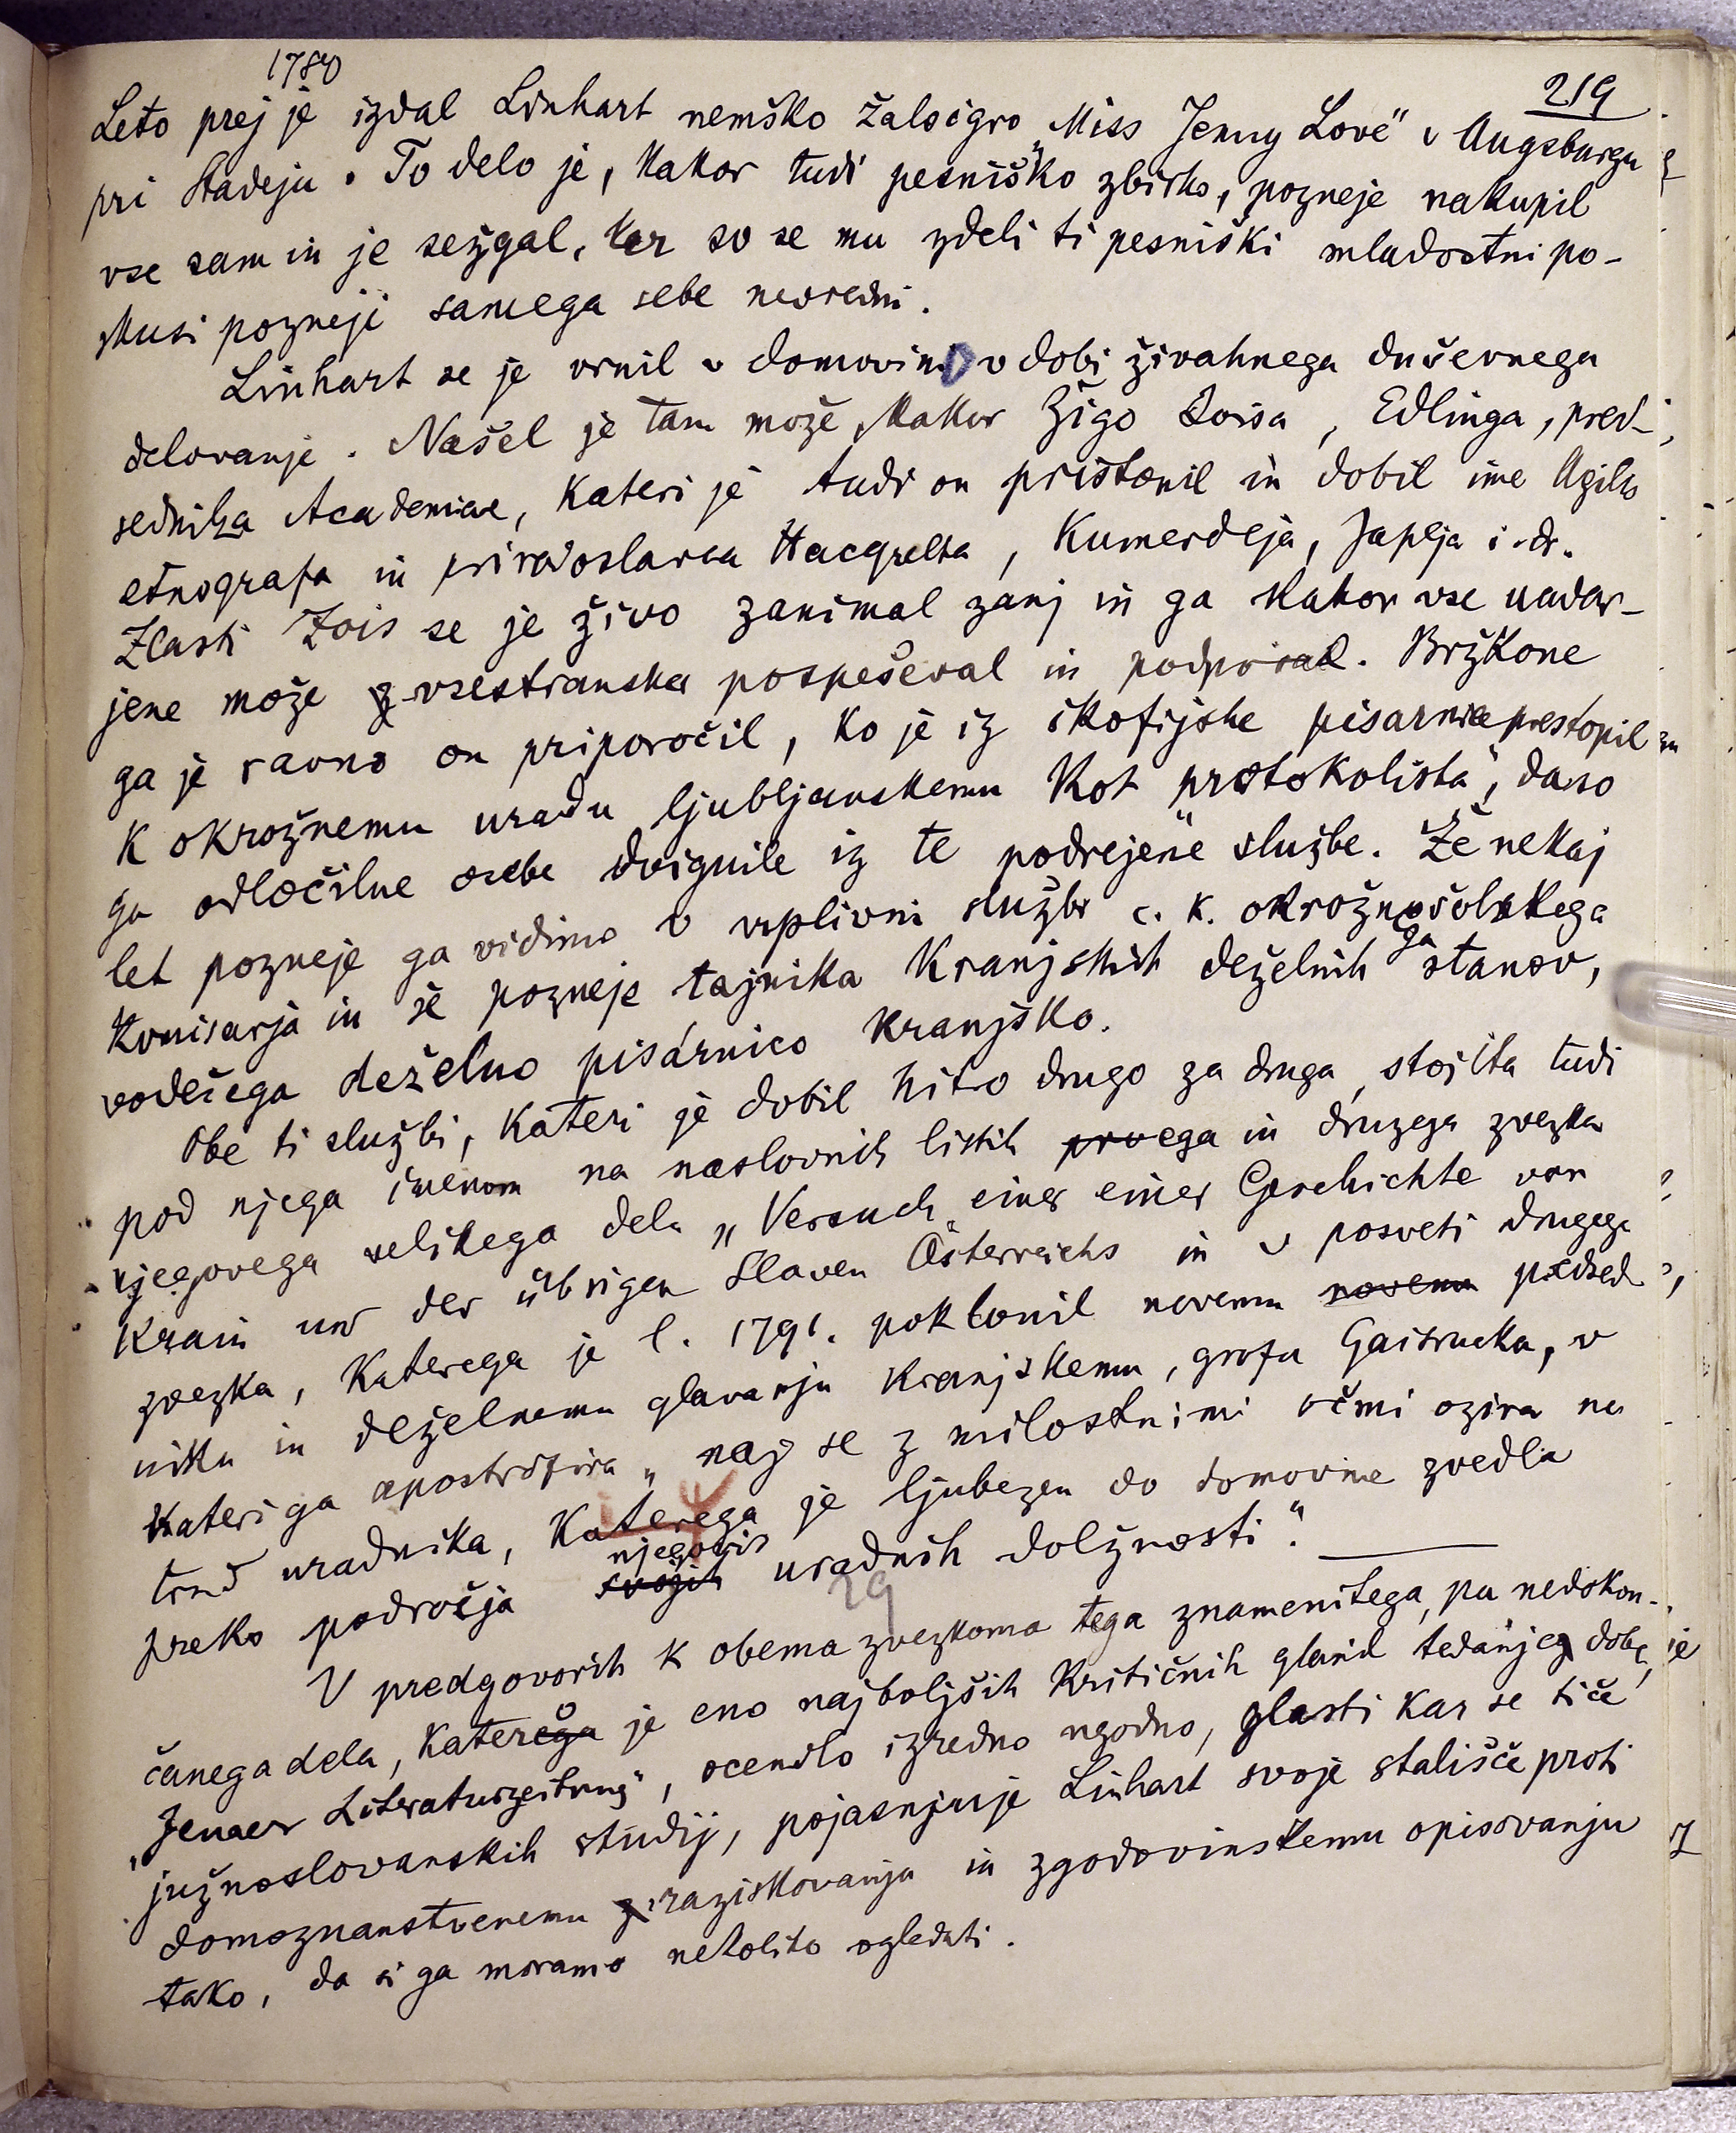 1780
219
Leto prej je izdal Linhart nemško žaloigro „Miss Jenny Love" v Augsburgu
pri Stadeju. To delo je, kakor tudi pesniško zbirko, pozneje nakupil
vse sam in je sežgal, ker so se mu zdeli ti pesniški mladostni po-
skusi pozneje samega sebe nevredni.
Linhart se je vrnil v domovino v dobi živahnega duševnega
delovanja. Našel je tam može kakor Žigo Zoisa, Edlinga, pred-
sednika Academiae, kateri je tudi on pristopil in dobil ime Agilis
etnografa in prirodoslovca Hacqueta, Kumerdeja, Japlja i. dr.
Zlasti Zois se je živo zanimal zanj in ga kakor vse nadar-
jene može z vsestransko pospeševal in podpiral. Bržkone
ga je ravno on priporočil, ko je iz škofijske pisarnice prestopil
k okrožnemu uradu ljubljanskemu kot „protokolista", da so
ga odločilne osebe dvignile iz te podrejene službe. Že nekaj
let pozneje ga vidimo v vplivni službi c. k. okrožnošolskega
komisarja in še pozneje tajnika kranjskih deželnih stanov,
ga
vodečega deželno pisarnico kranjsko.
Obe ti službi, kateri je dobil hitro drugo za drugo, stojita tudi
pod njega imenom na naslovnih listih prvega in druzega zvezka
njegovega velikega dela „Versuch einer einer Geschichte von
Krain und der übrigen Slaven Österreichs in v posveti drugega
zvezka, katerega je l. 1791. poklonil novemu novemu predsed-
niku in deželnemu glavarju kranjskemu, grofu Gaisrucku, v
kateri ga apostrofira „naj se z milostnimi očmi ozira na
trud uradnika, katerega je ljubezen do domovine zvedla
preko področja svojih uradnih dolžnosti".
njegovih
29
V predgovorih k obema zvezkoma tega znamenitega, pa nedokon-
čanega dela, katerega je eno najboljših kritičnih glasil tedanje dobe,
o
„Jenaer Literaturzeitung", ocenilo izredno ugodno, zlasti kar se tiče
južnoslovanskih študij, pojasnjuje Linhart svoje stališče proti
domoznanstvenemu raziskovanju in zgodovinskemu opisovanju
tako, da si ga moramo nekoliko ogledati.